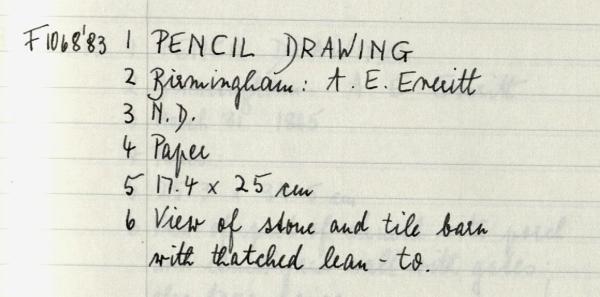 F1068'83 1 PENCIL DRAWING
2 Birmingham: A. E. Everitt
3 N.D.
4 Paper
5 17.4 x 25 cm
6 View of stone and tile barn
with thatched lean-to.